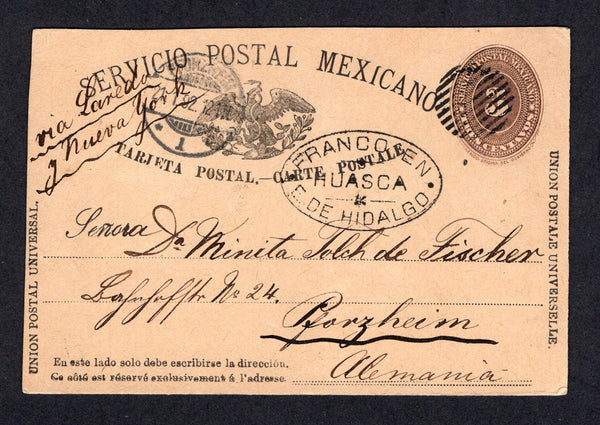 SERVICIO POSTAL MEXICANO
via Laredo
y Nueva York
92
1
TARJETA POSTAL.—CARTE POSTALE
FRANCO EN
HUASCA
E. DE HIDALGO
SERVICIO POSTAL MEXICANO
CENTAVOS
UNION POSTAL UNIVERSAL.
UNION POSTALE UNIVERSELLE.
Señora Da. Minita Solch de Fischer
Bahnhofstr No 24.
Pforzheim
Alemania
En este lado solo debe escribirse la dirección.
Ce côté est réservé exclusivement á l'adresse.